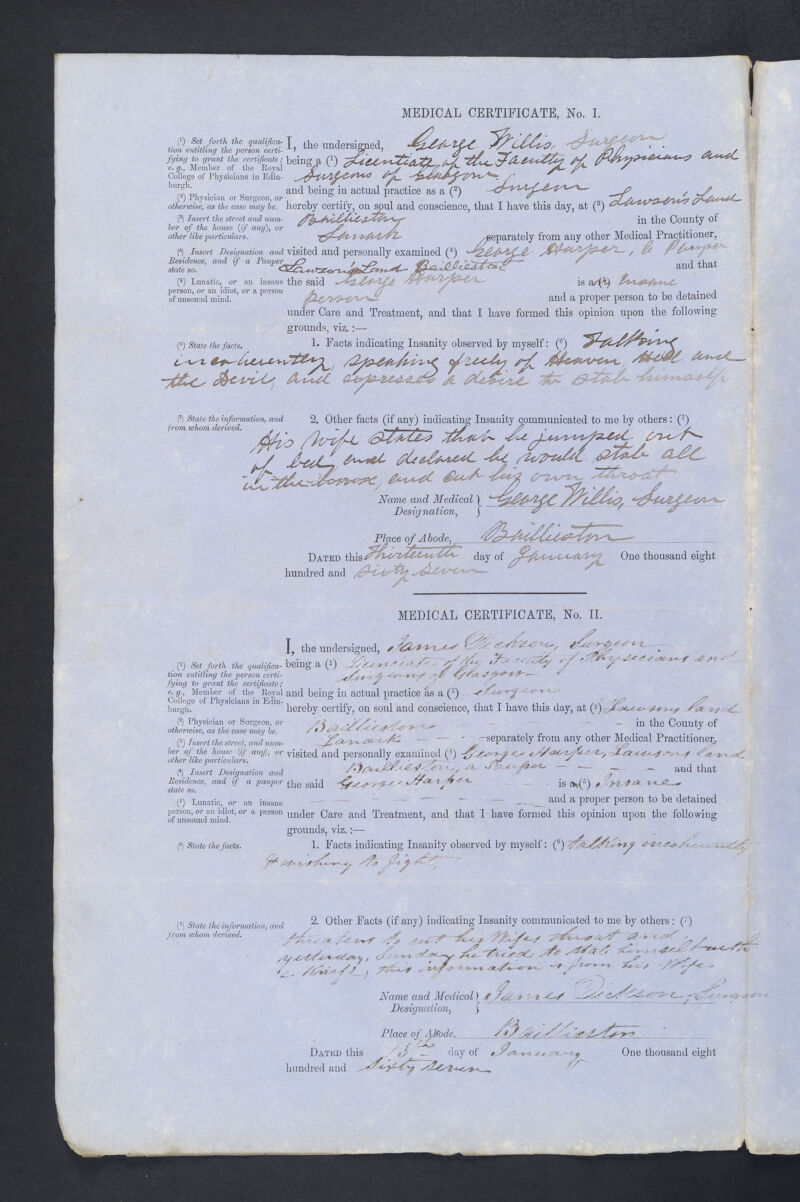 MEDICAL CERTIFICATE, No. I.
(1) Set forth the qualifica-
tion entitling the person certi-
fying to grant the certificate;
e. g., Member of the Royal
College of Physicians in Edin-
burgh.
(2) Physician or Surgeon, or
otherwise, as the case may be.
(3) Insert the street and num-
ber of the house (if any), or
other like particulars.
(4) Insert Designation and
Residence, and if a Pauper
state so.
(5) Lunatic, or an insane
person, or an idiot, or a person
of unsound mind.
I, the undersigned, George Willis, Surgeon
being a (1) Licentiate of the Faculty of Physicians and
Surgeons of Glasgow
and being in actual practice as a (2) Surgeon
hereby certify, on soul and conscience, that I have this day, at (3) Lawson's Land
Baillieston in the County of
Lanark separately from any other Medical Practitioner,
visited and personally examined (4) George Harper, a Pauper
Lawson's Land Baillieston and that
the said George Harper is a (5) Insane
person and a proper person to be detained
under Care and Treatment, and that I have formed this opinion upon the following
grounds, viz.:—
(6) State the facts.
1. Facts indicating Insanity observed by myself: (6) Talking
incoherently, speaking freely of Heaven Hell and
the Devil, and expresses a desire to stab himself
(7) State the information, and
from whom derived.
2. Other facts (if any) indicating Insanity communicated to me by others: (7)
His wife states that he jumped out
of bed, and declared he would stab all
in the house, and cut his own throat
Name and Medical Designation, George Willis, Surgeon
Place of Abode, Baillieston
DATED this Thirteenth day of January One thousand eight
hundred and Sixty Seven
MEDICAL CERTIFICATE, No. II.
(1) Set forth the qualifica-
tion entitling the person certi-
fying to grant the certificate;
e. g., Member of the Royal
College of Physicians in Edin-
burgh.
(2) Physician or Surgeon, or
otherwise, as the case may be.
(3) Insert the street, and num-
ber of the house (if any), or
other like particulars.
(4) Insert Designation and
Residence, and if a pauper
state so.
(5) Lunatic, or an insane
person, or an idiot, or a person
of unsound mind.
I, the undersigned, James Dickson, Surgeon
being a (1) Licenciate of the Faculty of Physicians and
Surgeons of Glasgow
and being in actual practice as a (2) Surgeon
hereby certify, on soul and conscience, that I have this day, at (3) Lawsons land
Baillieston in the County of
Lanark separately from any other Medical Practitioner,
visited and personally examined (4) George Harper, Lawsons land
Baillieston, a Pauper and that
the said George Harper is a (5) Insane
and a proper person to be detained
under Care and Treatment, and that I have formed this opinion upon the following
grounds, viz.:—
(6) State the facts.
1. Facts indicating Insanity observed by myself: (6) talking incoherently
& wishing to fight.
(7) State the information, and
from whom derived.
2. Other Facts (if any) indicating Insanity communicated to me by others: (7)
threatens to cut his Wifes throat and
yesterday, Sunday he tried to stab himself with
a Knife, this information is from his Wife
Name and Medical Designation, James Dickson, Surgeon
Place of Abode, Baillieston
DATED this 13th day of January One thousand eight
hundred and Sixty seven